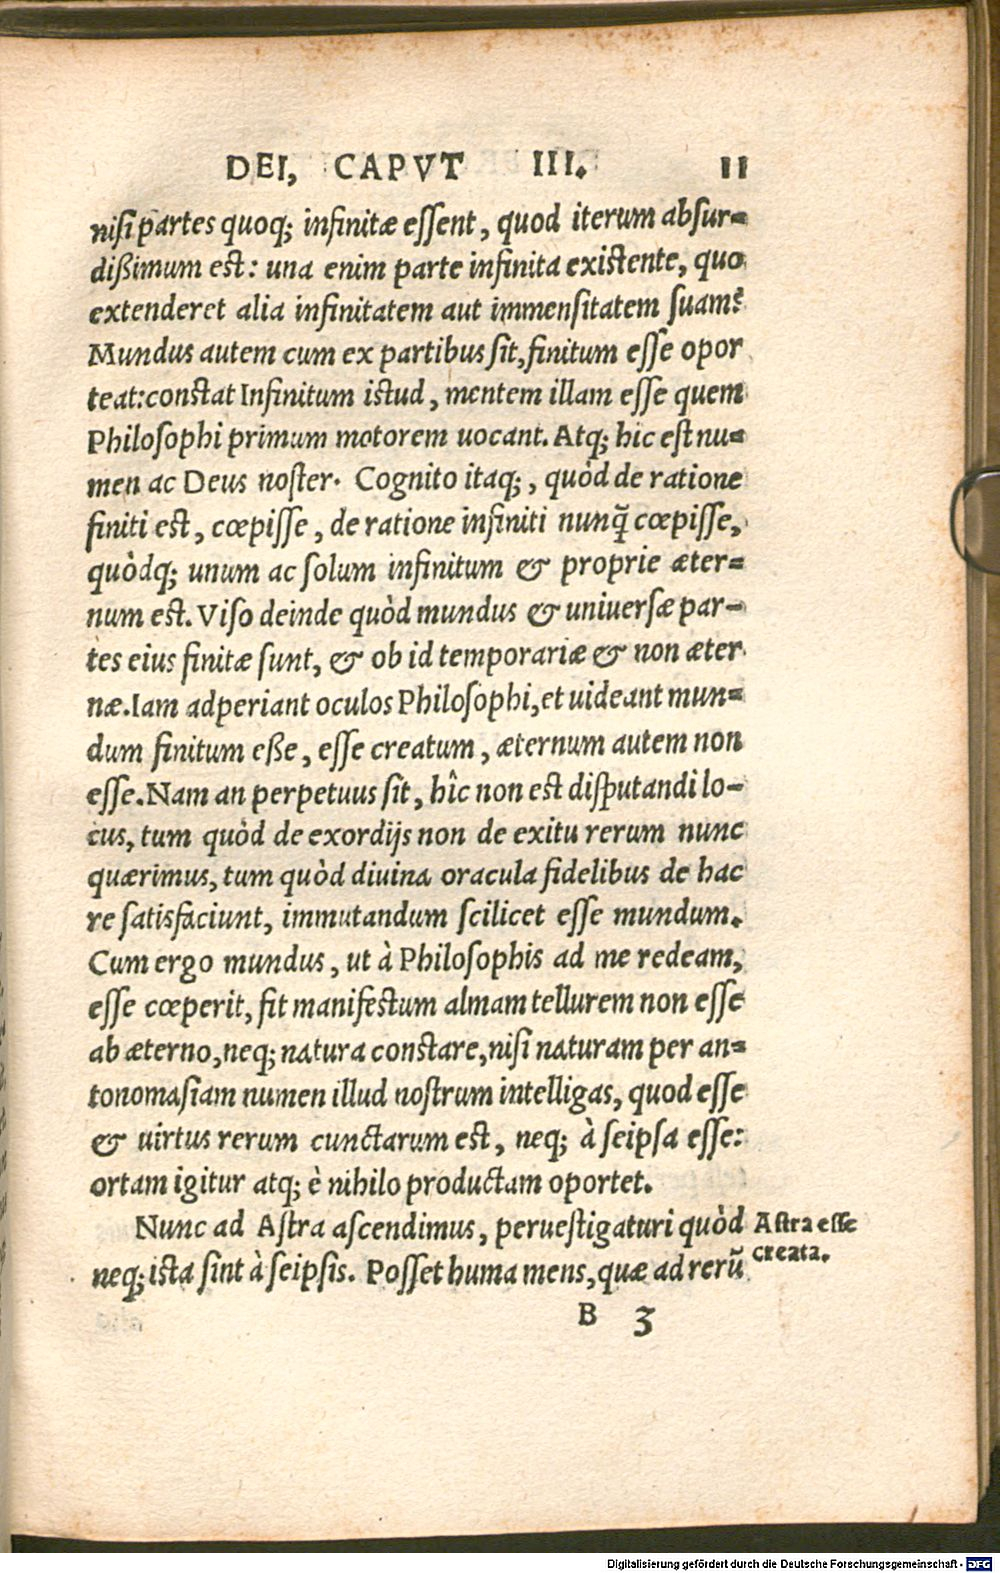 DEI, CAPVT III. 11
nisi partes quoq; infinitæ essent, quod iterum absur-
dißimum est: una enim parte infinita existente, quo
extenderet alia infinitatem aut immensitatem suam?
Mundus autem cum ex partibus sit, finitum esse opor
teat: constat Infinitum istud, mentem illam esse quem
Philosophi primum motorem uocant. Atq; hic est nu-
men ac Deus noster. Cognito itaq;, quòd de ratione
finiti est, cœpisse, de ratione infiniti nunq̃ cœpisse,
quòdq; unum ac solum infinitum & proprie æter-
num est. Viso deinde quòd mundus & uniuersæ par-
tes eius finitæ sunt, & ob id temporariæ & non æter
næ. Iam adperiant oculos Philosophi, et uideant mun-
dum finitum eße, esse creatum, æternum autem non
esse. Nam an perpetuus sit, hîc non est disputandi lo-
cus, tum quòd de exordijs non de exitu rerum nunc
quærimus, tum quòd diuina oracula fidelibus de hac
re satisfaciunt, immutandum scilicet esse mundum.
Cum ergo mundus, ut à Philosophis ad me redeam,
esse cœperit, fit manifestum almam tellurem non esse
ab æterno, neq; natura constare, nisi naturam per an-
tonomasiam numen illud nostrum intelligas, quod esse
& uirtus rerum cunctarum est, neq; à seipsa esse:
ortam igitur atq; è nihilo productam oportet.
Nunc ad Astra ascendimus, peruestigaturi quòd
neq; ista sint à seipsis. Posset huma mens, quæ ad rerũ
Astra esse
creata.
B 3
Digitalisierung gefördert durch die Deutsche Forschungsgemeinschaft - DFG